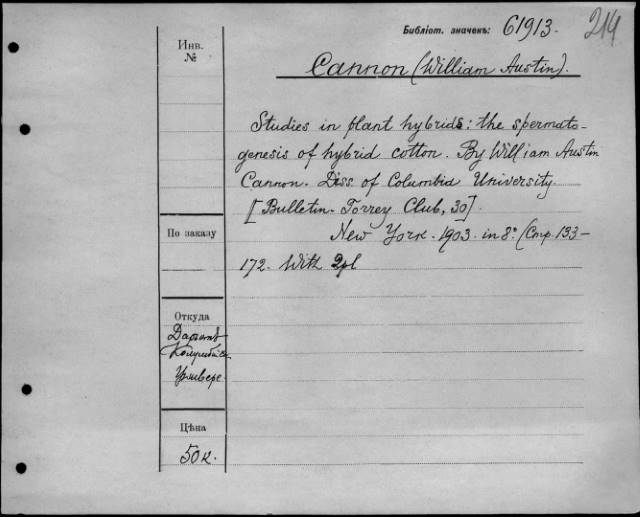 Библіот. значекъ: 61913.
214
Инв.
№
Cannon (William Austin).
Studies in plant hybrids: the spermato-
genesis of hybrid cotton. By William Austin
Cannon. Diss. of Columbia University.
[Bulletin. Torrey Club, 30].
New York. 1903. in 8º. (Стр. 133-
172. With 2pl
По заказу
Откуда
Даръ
Колумбійск.
Универс.
Цѣна
50к.